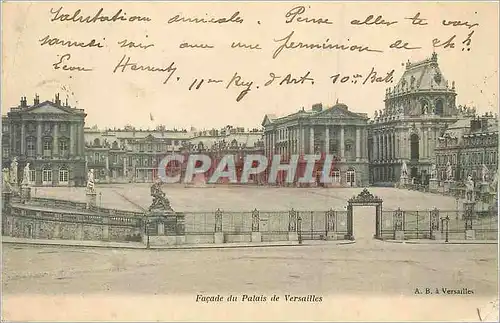 Salutations amicales. Pense aller te voir
samedi soir avec une permission de 24h.
Léon
11me Reg. d'Art. 10e Bat
CPARAMA
Façade du Palais de Versailles
A. B. à Versailles